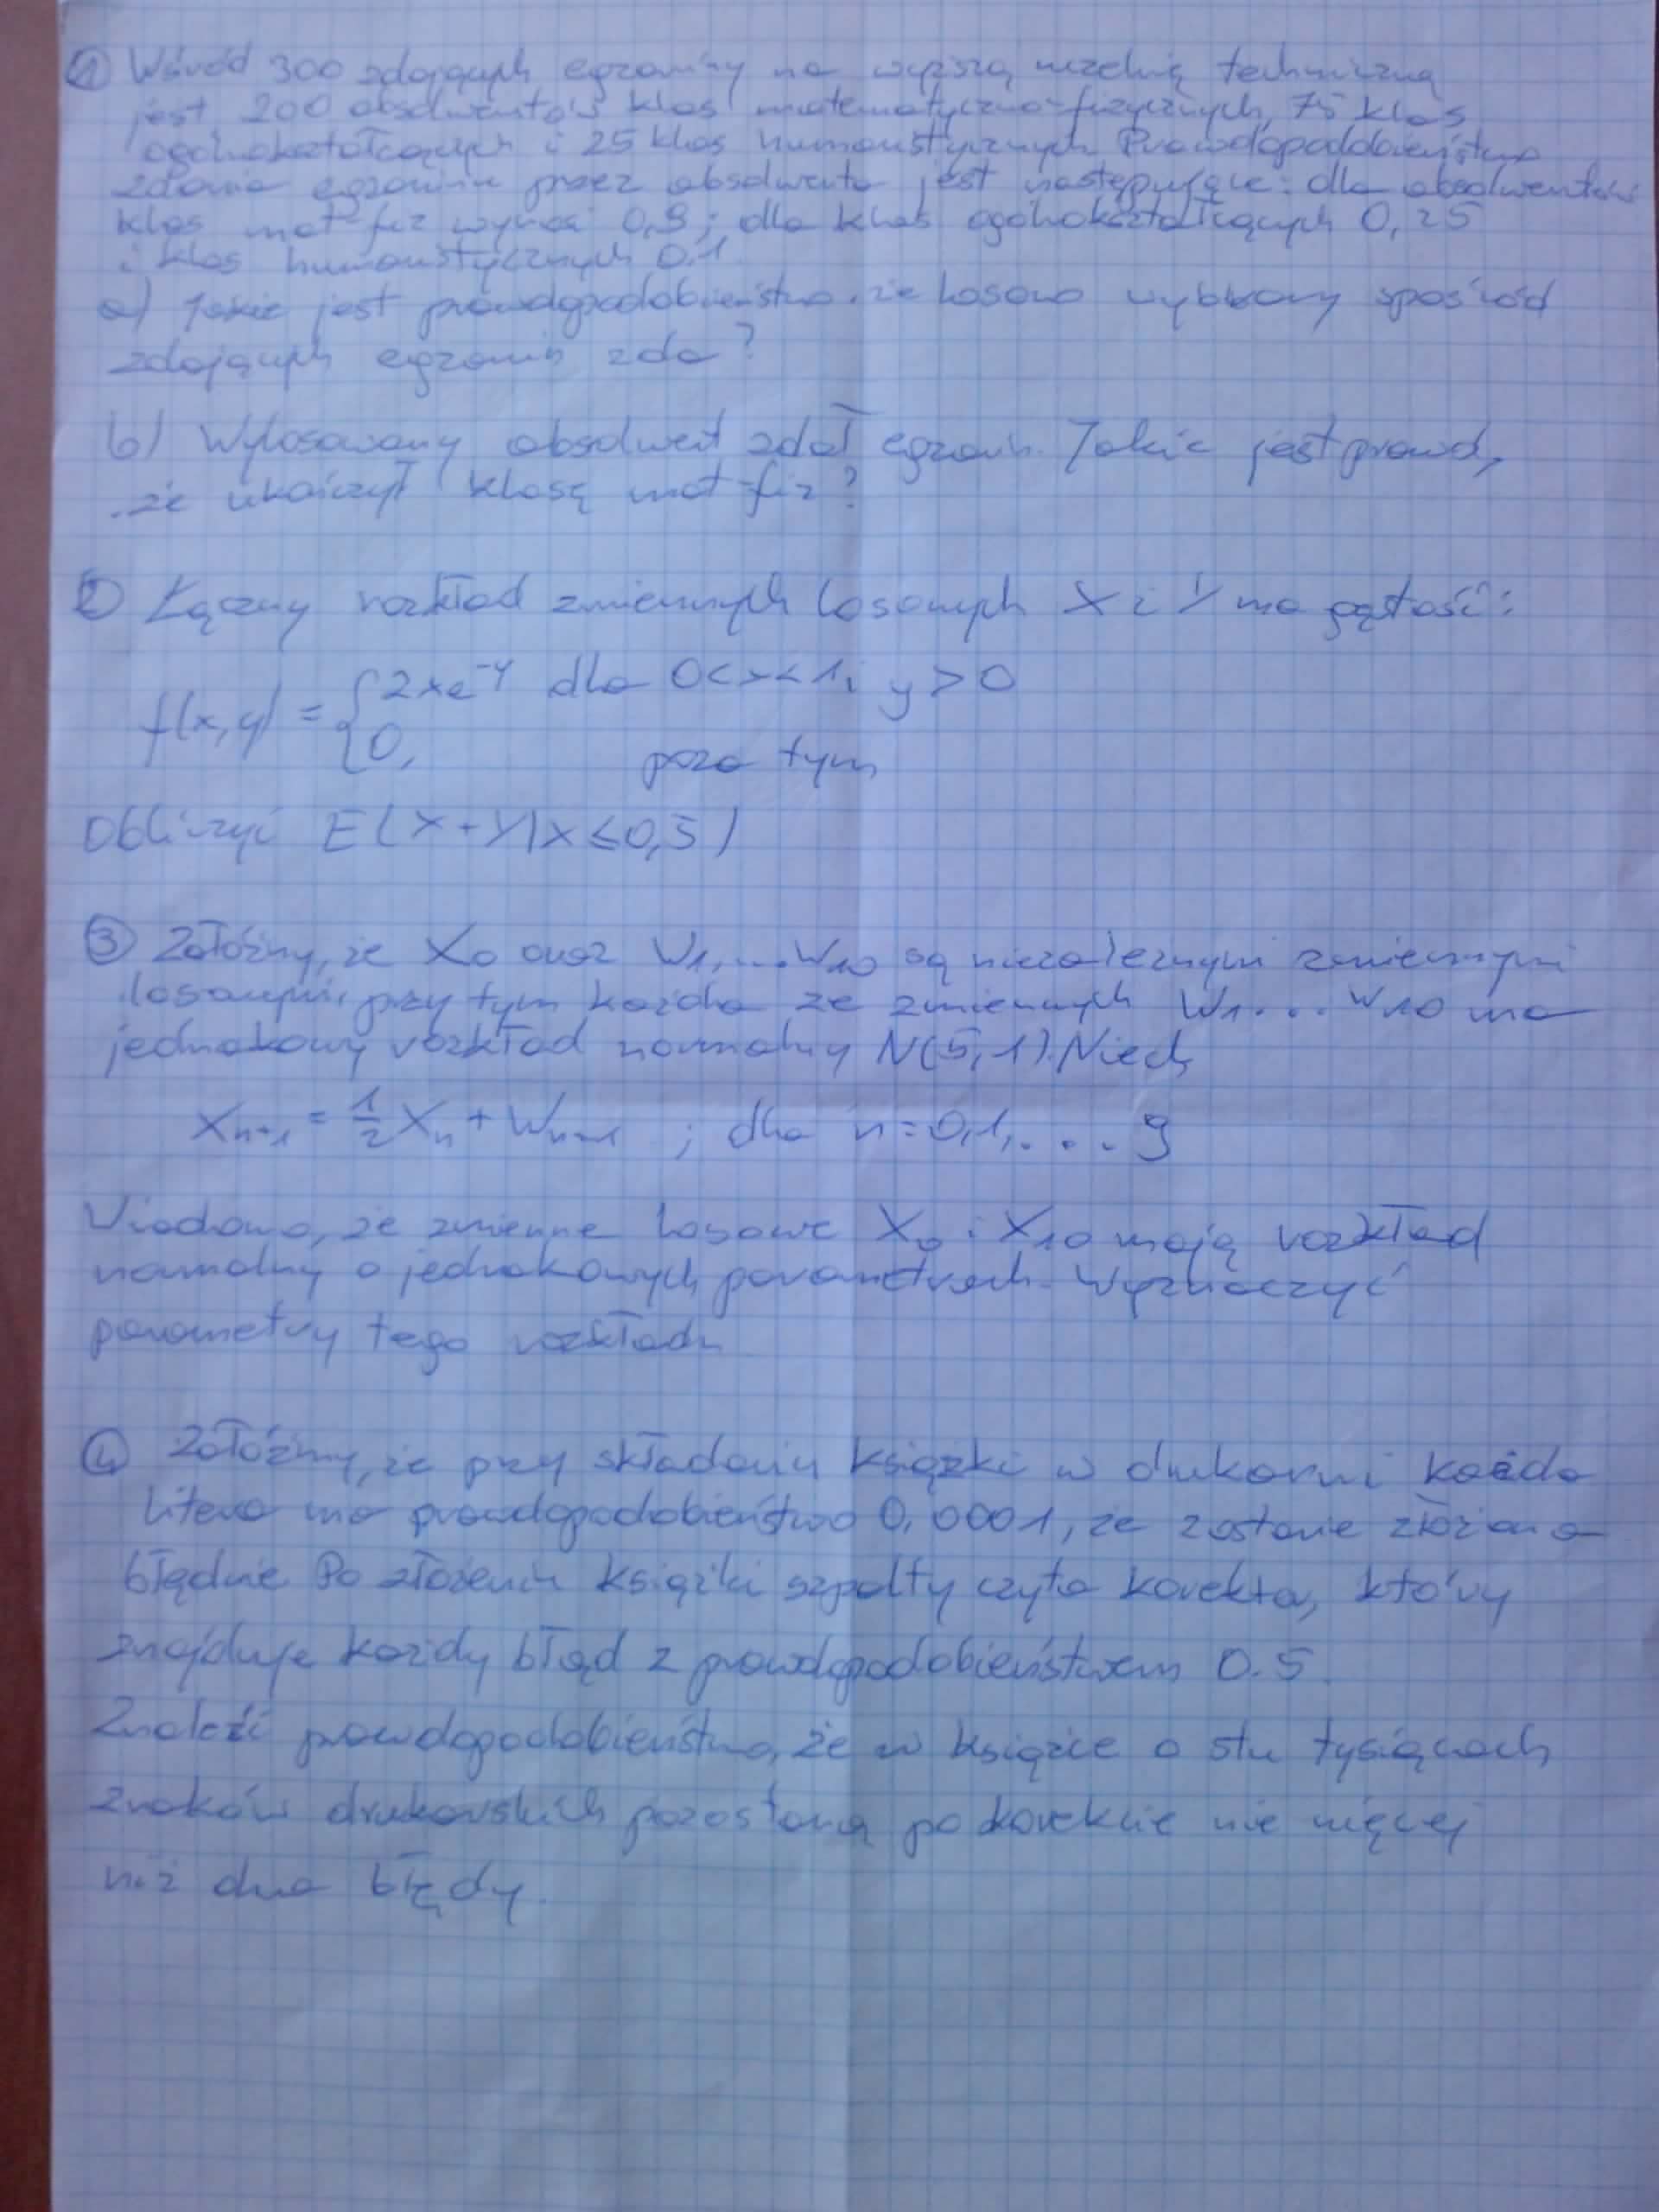 ① Wśród 300 zdających egzaminy na wyższą uczelnię techniczną
jest 200 absolwentów klas matematyczno-fizycznych, 75 klas
ogólnokształcących i 25 klas humanistycznych. Prawdopodobieństwo
zdania egzaminu przez absolwenta jest następujące: dla absolwentów
klas mat-fiz wynosi 0,9; dla klas ogólnokształcących 0,25
i klas humanistycznych 0,1
a) Jakie jest prawdopodobieństwo, że losowo wybrany spośród
zdających egzamin zda?
b) Wylosowany absolwent zdał egzamin. Jakie jest prawd,
że ukończył klasę mat-fiz?
② Łączny rozkład zmiennych losowych X i Y ma gęstość:
f(x,y) = { 2xe^{-y} dla 0<x<1, y>0
0, poza tym
Obliczyć E(X+Y|X≤0,5)
③ Załóżmy, że X₀ oraz W₁,...W₁₀ są niezależnymi zmiennymi
losowymi, przy tym każda ze zmiennych W₁...W₁₀ ma
jednakowy rozkład normalny N(5,1). Niech
X_{n+1} = ½X_n + W_{n+1} ; dla n=0,1,...9
Wiadomo, że zmienne losowe X₀ i X₁₀ mają rozkład
normalny o jednakowych parametrach. Wyznaczyć
parametry tego rozkładu
④ Załóżmy, że przy składaniu książki w drukarni każda
litera ma prawdopodobieństwo 0,0001, że zostanie złożona
błędnie. Po złożeniu książki szpalty czyta korektor, który
znajduje każdy błąd z prawdopodobieństwem 0.5
Znaleźć prawdopodobieństwo, że w książce o stu tysiącach
znaków drukarskich pozostaną po korekcie nie więcej
niż dwa błędy.